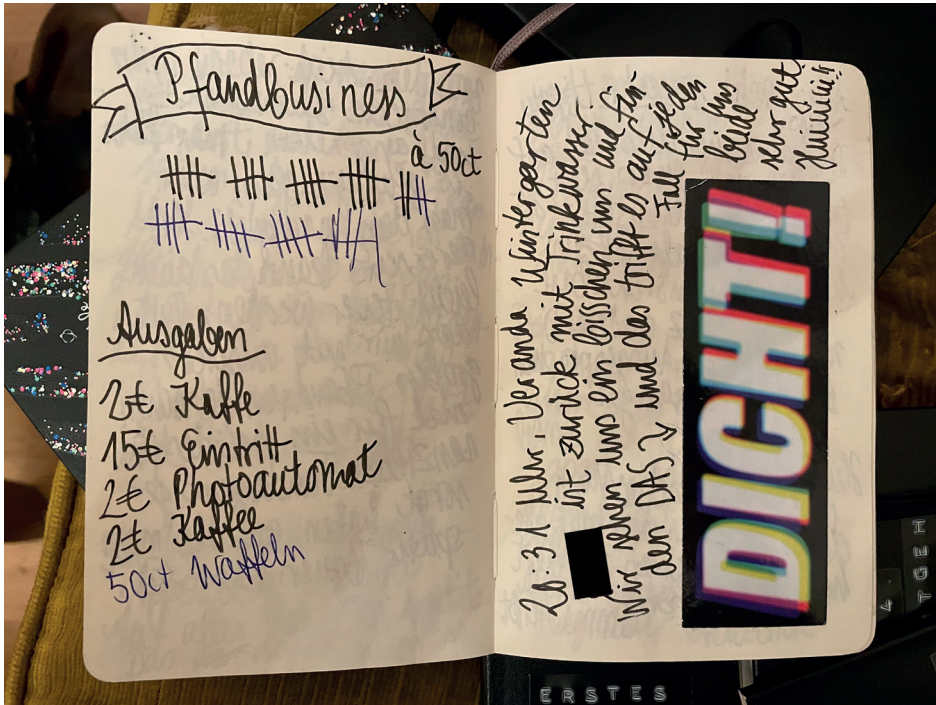 Pfandbusiness
á 50ct
Ausgaben
2€ Kaffe
15€ Eintritt
2€ Photoautomat
2€ Kaffee
50ct Waffeln
20:31 Uhr, Veranda Wintergarten
ist zurück mit Trinkwasser.
Wir sehen uns ein bisschen um und fin-
den DAS ↘ und das trifft es auf jeden
Fall für uns
beide
sehr gut
DICHT!
ERSTES
4
TGEH